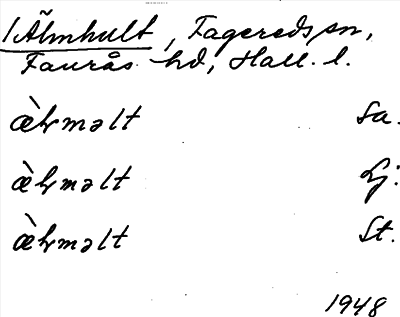 1 Älmhult, Fagereds sn,
Faurås hd, Hall. l.
æ̀ḷməlt Sa.
æ̀ḷməlt Lj.
æ̀ḷməlt St.
1948